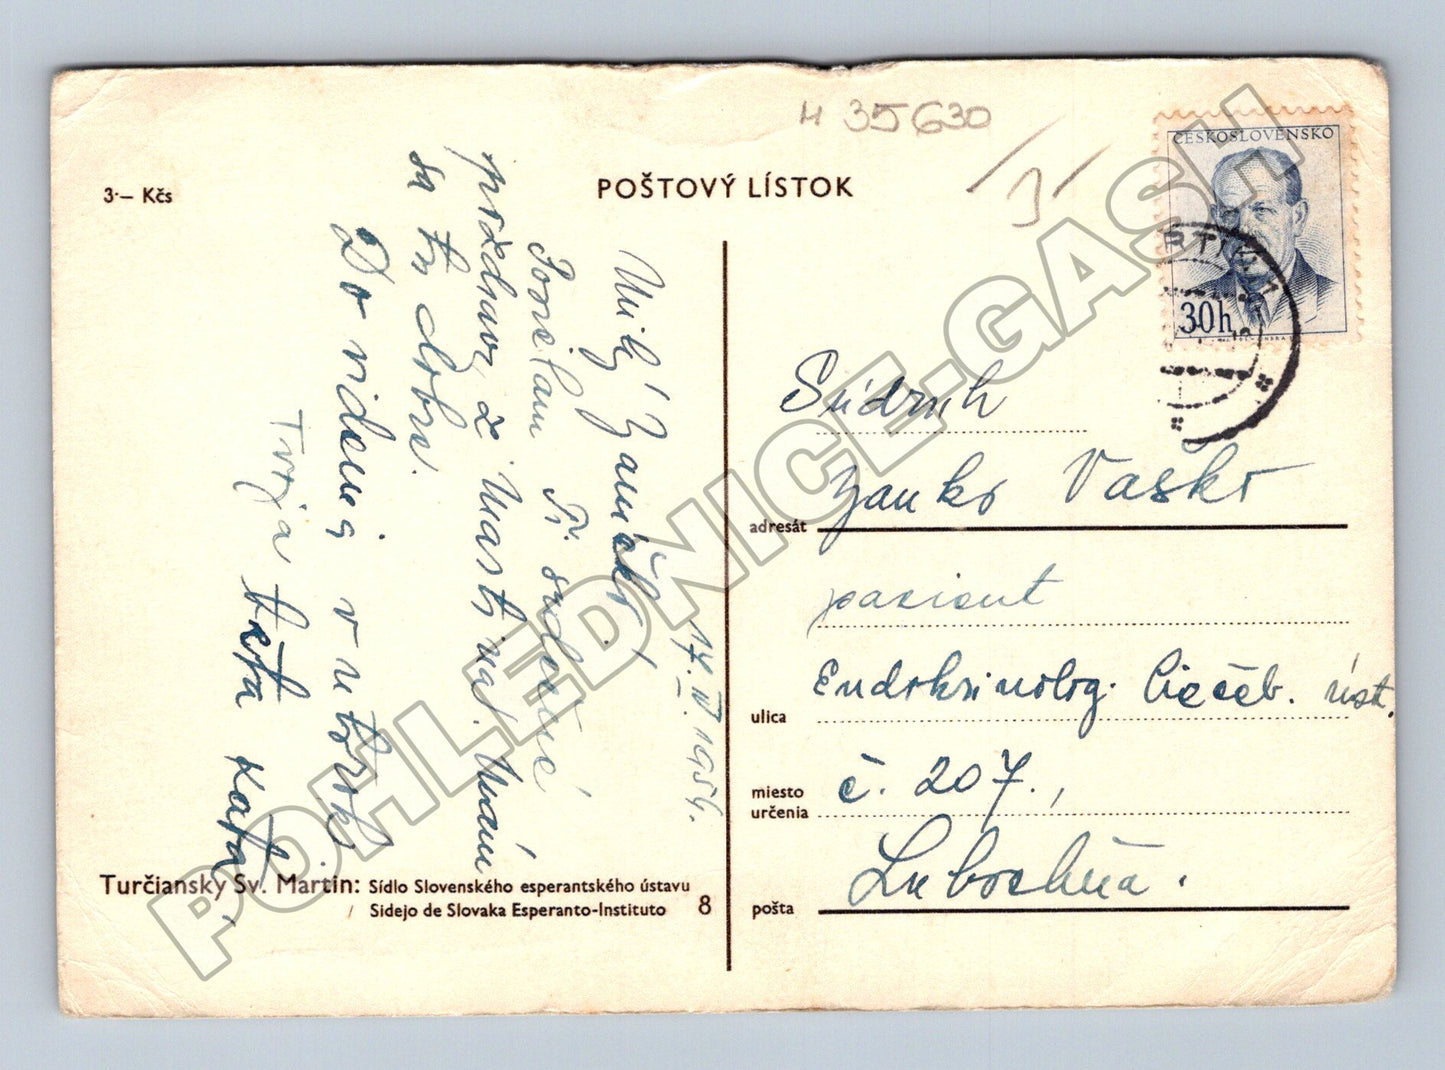 H 35630
3·— Kčs
POŠTOVÝ LÍSTOK
ČESKOSLOVENSKO
30h
17. IV. 1954.
Milý Janíčko!
Posielam Ti srdečné
pozdravy z Martina. Mám
sa tu dobre.
Do videnia v utorok
Tvoja teta Kata
Súdruh
adresát Janko Vaško
pacient
ulica Endokrinolog. liečeb. úst.
miesto určenia č. 207.,
pošta Lubochňa.
Turčiansky Sv. Martin: Sídlo Slovenského esperantského ústavu
Sidejo de Slovaka Esperanto-Instituto 8
POHLEDNICE-GASH